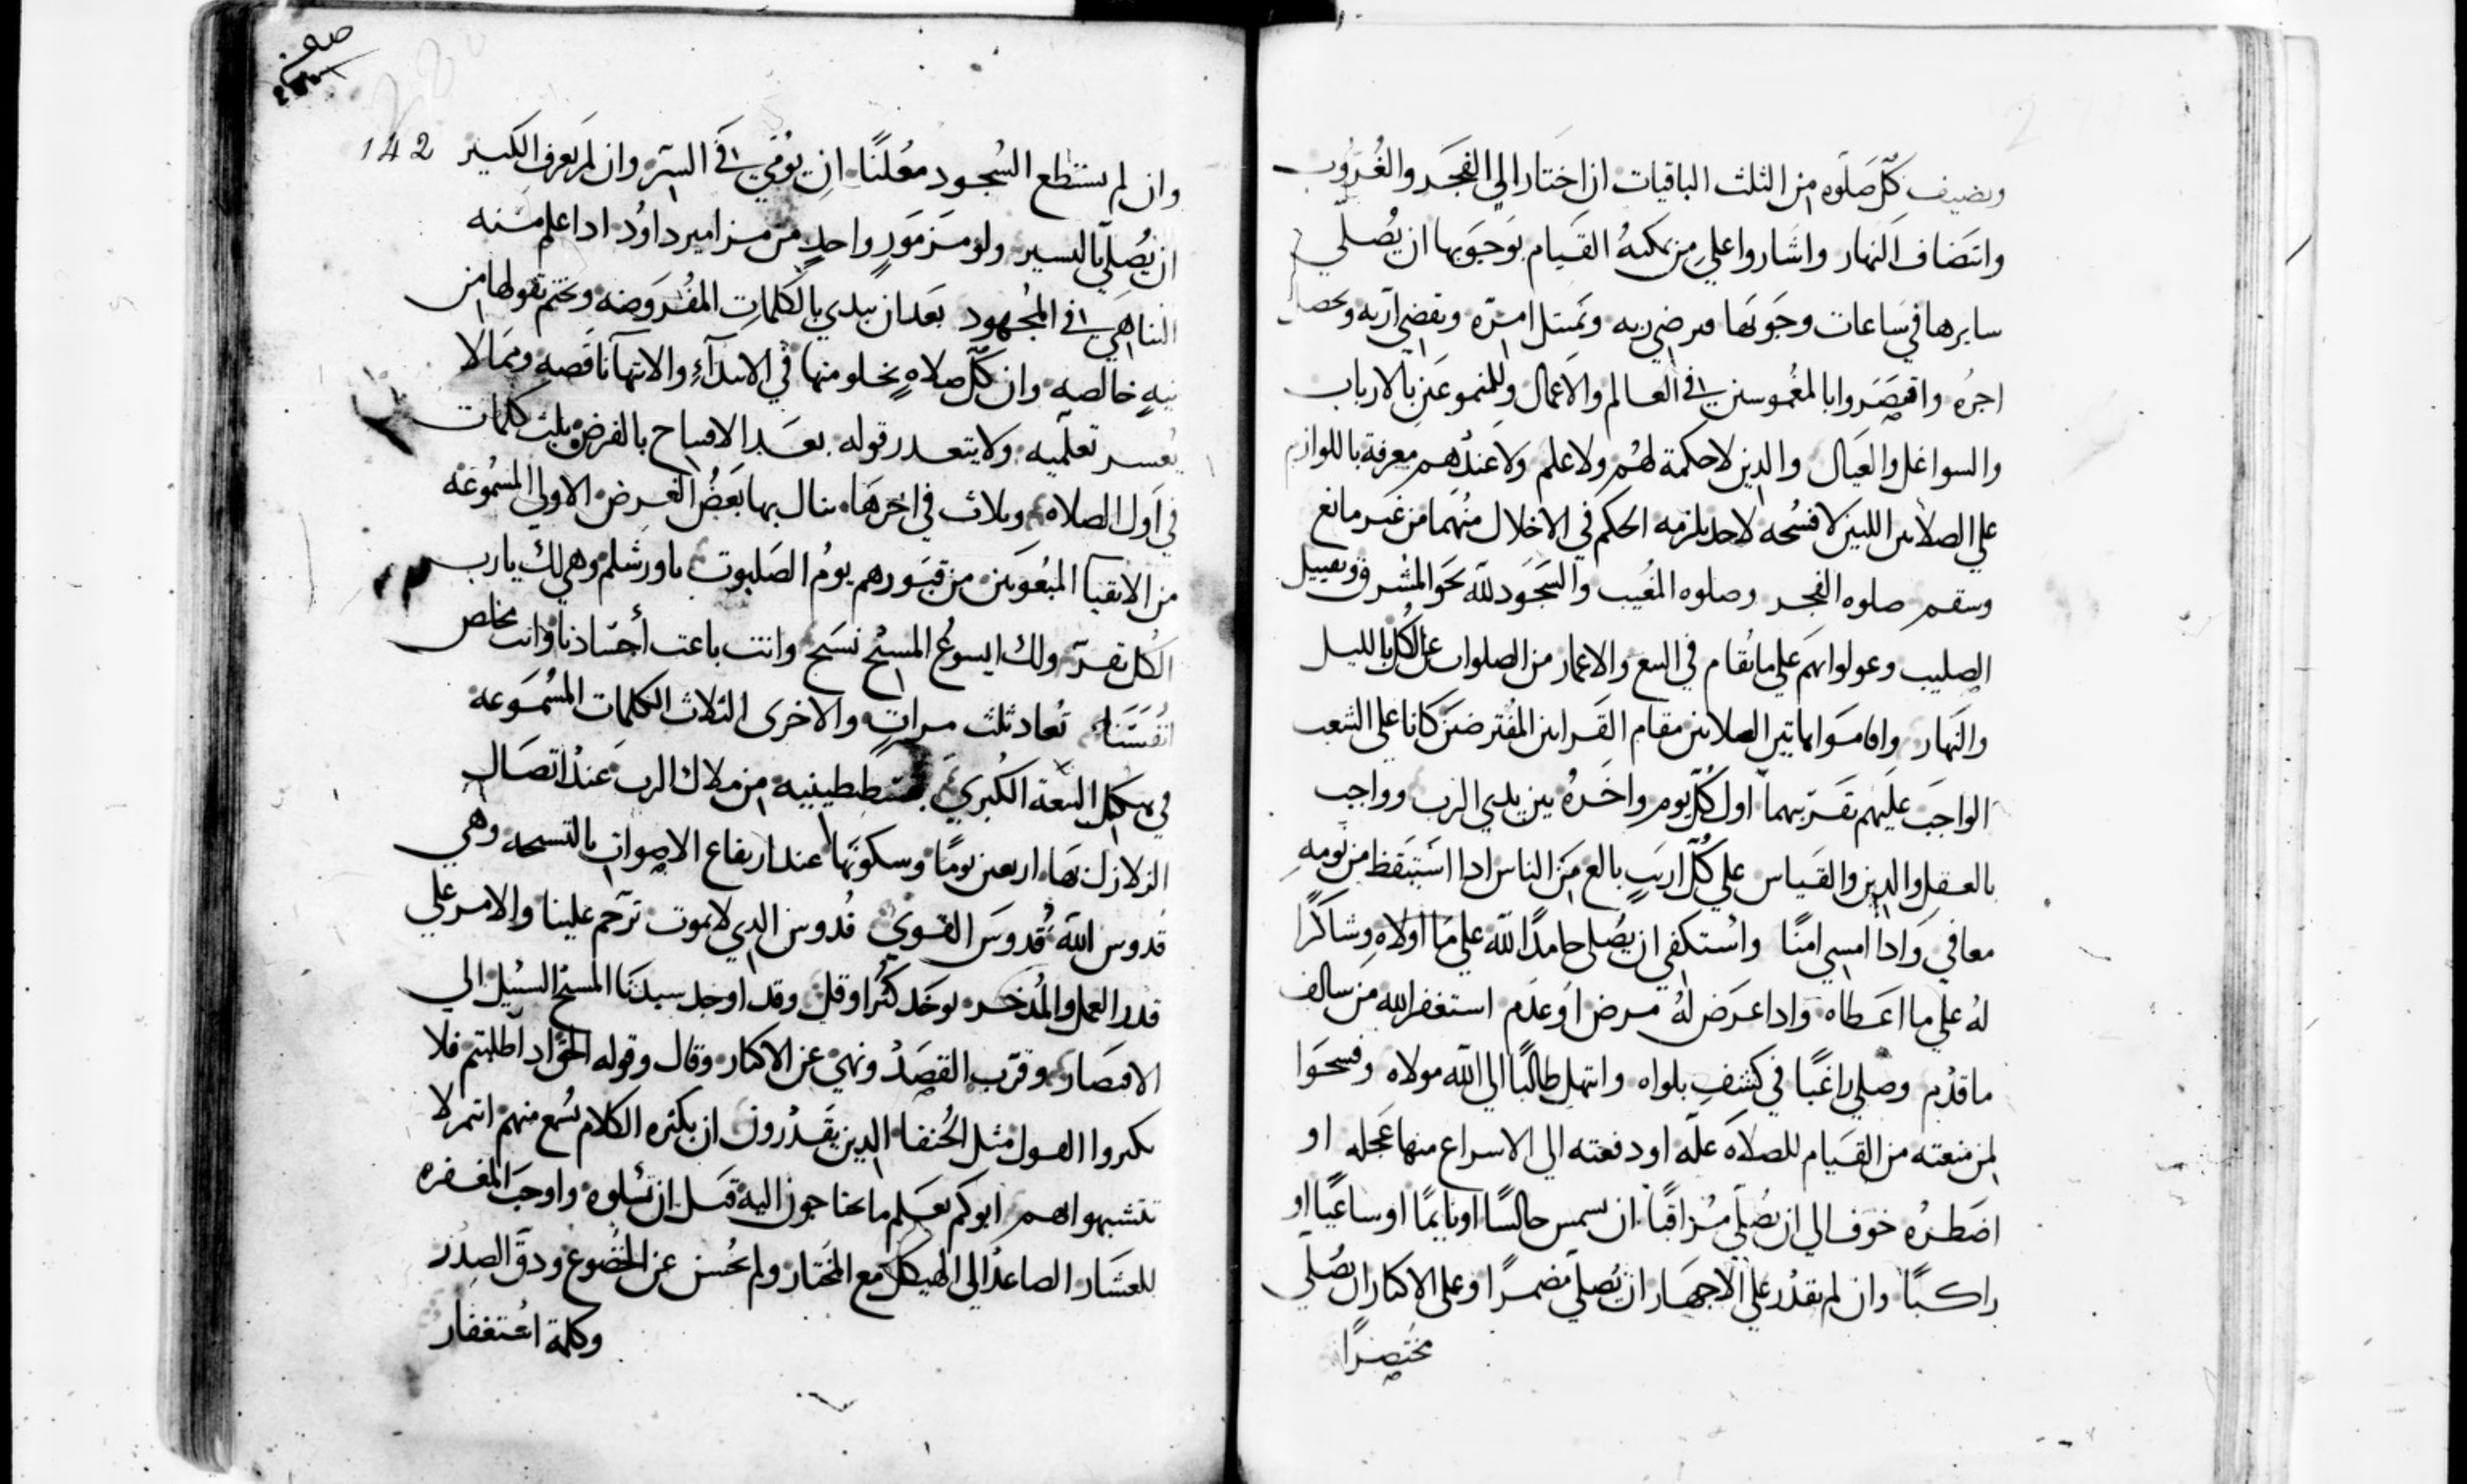 ويضيف كل صلوه من الثلث الباقيات ان اختار الي الفجر والغروب
وانتصاف النهار واشاروا علي من يمكنهُ القيام بوجوبها ان يُصلي
سايرها في ساعات وجوبها فيرضي ربه ويمتثل امره ويقضي اربه ويحصل
اجرُه واقتصروا بالمغموسين في العالم والاعمال وللمنموعين بالارباب
والسواغل والعيال والدين لا حكمة لهُم ولا علم ولا عندهم معرفة باللوازم
علي الصلاتين اللتين لا فسُحه لاحد يلزمه الحكم في الاخلال منهما من غير مانع
وسقم صلوه الفجر وصلوه المغيب والسجود لله نحو المشرق وتقبيل
الصليب وعولوا بهم علي ما يُقام في البيع والاعمار من الصلوات عن الكُل بالليل
والنهار واقاموا هاتين الصلاتين مقام القرابين المفترضين كانا علي الشعب
الواجب عليهم تقريبهما اول كُل يوم واخرهُ بين يدي الرب وواجب
بالعقل والدين والقياس علي كُل اريب بالغ من الناس ادا استيقظ من نومه
معافي وادا امسي امنًا واستكفي ان يُصلي حامدًا لله علي ما اولاه وشاكرًا
لهُ علي ما اعطاه وادا عرض لهُ مرض او عدم استغفر الله من سالف
ما قدم وصلي راغبًا في كشف بلواه وابتهل طالبًا الي الله مولاه وفسحوا
لمن منعته من القيام للصلاة علّه او دفعته الي الاسراع منها عجله او
اضطرُه خوف الي ان يُصلي مُراقبًا ان جالسًا او نايمًا او ساعيًا او
راكبًا وان لم يقدُر علي الاجهار ان يُصلي مضمرًا وعلي الاكثار ان يُصلي
مختصرًا
142
وان لم يستطع السُجود معُلنًا ان يُومي في السّر وان لم يعرف الكبير
ان يُصلي باليسير ولو مزمورٍ واحدٍ من مزامير داوُد ادا علم منه
التناهي في المجُهود بعد ان يبدي بالكلمات المفروضه ويختم بقولها من
نيهٍ خالصه وان كل صلاهٍ يخلو منها في الابتدآء والانتهآ ناقصه ومما لا
يُعسر تعلّميه ولا يتعدر قوله بعد الافتتاح بالفرض ثلث كلمات
في اول الصلاه وثلاث في اخرها ينال بها بعضُ الغرض الاولي المسُموعة
من الاتقيآ المبعوثين من قبورهم يومُ الصلبوت باورشلم وهي لك يا رب
الكُل نقرّ ولك ايسوعُ المسيح نسبح وانت باعث أجسادنا وانت مخلص
انفُسنا تُعاد ثلث مراتٍ والاخري الثلاث الكلمات المسُموعه
في هيكل البيعة الكُبري بقسطنطينيه من ملاك الرب عند اتصال
الزلازل بها اربعين يومًا وسكونها عند ارتفاع الاصوات بالتسبحه وهي
قدوس اللهُ قُدوس القوي قُدوس الدي لا يموت ترحم علينا والامر علي
قدر العمل والمُدخر يوخد كثُر او قل وقد اوجد سيدنا المسيح السبيل الي
الاقتصار وقرّب القصد ونهي عن الاكثار وقال وقوله الحق اد اطلبتم فلا
تكثروا القول مثل الحُنفا الدين يقدرون ان بكثره الكلام يُسمع منهم انتم لا
تتشبهوا بهم ابوكم يعلم ما تحتاجون اليه قبل ان تسُلوه واوجب المغفره
للعشار الصاعد الي الهيكل مع المختار ولم يحُسن عن الخضُوع ودقّ الصدر
وكلمة استغفار